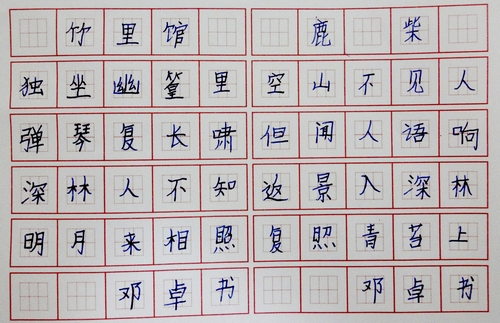 竹里馆
独坐幽篁里
弹琴复长啸
深林人不知
明月来相照
邓卓书
鹿柴
空山不见人
但闻人语响
返景入深林
复照青苔上
邓卓书